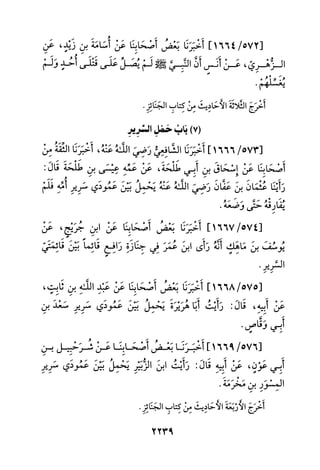 [٥٧٢/ ١٦٦٤] أَخْبَرَنَا بَعْضُ أَصْحَابِنَا عَنْ أُسَامَةَ بنِ زَيْدٍ، عَنِ
الـزُّهْـرِيِّ، عَـنْ أَنَـسٍ أَنَّ النَّبِـيَّ ﷺ لَـمْ يُصَـلِّ عَلَـى قَتْلَـى أُحُـدٍ وَلَـمْ
يُغَسِّلْهُمْ.
خَرَجَ الثَّلاثَةَ الأَحَادِيثَ مِنْ كِتَابِ الجَنَائِزِ.
(٧) بَابُ حَمْلِ السِّرِيرِ
[٥٧٣/ ١٦٦٦] أَخْبَرَنَا الشَّافِعِيُّ رَضِيَ اللَّهُ عَنْهُ، أَخْبَرَنَا الثِّقَةُ مِنْ
أَصْحَابِنَا عَنْ إِسْحَاقَ بنِ أَبِي طَلْحَةَ، عَنْ عَمِّهِ عِيْسَى بنِ طَلْحَةَ قَالَ:
رَأَيْنَا عُثْمَانَ بنَ عَفَّانَ رَضِيَ اللَّهُ عَنْهُ يَحْمِلُ بَيْنَ عَمُودَي سَرِيرِ أُمِّهِ فَلَمْ
يُفَارِقْهُ حَتَّى وَضَعَهُ.
[٥٧٤/ ١٦٦٧] أَخْبَرَنَا بَعْضُ أَصْحَابِنَا عَنِ ابنِ جُرَيْجٍ، عَنْ
يُوسُفَ بنِ مَاهِكٍ أَنَّهُ رَأَى ابنَ عُمَرَ فِي جِنَازَةِ رَافِـعٍ قَائِماً بَيْنَ قَائِمَتَي
السِّرِيرِ.
[٥٧٥/ ١٦٦٨] أَخْبَرَنَا بَعْضُ أَصْحَابِنَا عَنْ عَبْدِ اللَّهِ بنِ ثَابِتٍ،
عَنْ أَبِيهِ، قَالَ: رَأَيْتُ أَبَا هُرَيْرَةَ يَحْمِلُ بَيْنَ عَمُودَي سَرِيرِ سَعْدَ بنِ
أَبِـي وَقَّاصٍ.
[٥٧٦/ ١٦٦٩] أَخْـبَـرَنَـا بَعْـضُ أَصْحَـابِـنَـا عَـنْ شُـرَحْبِيـلِ بـنِ
أَبِـي عَوْنٍ، عَنْ أَبِيهِ قَالَ: رَأَيْتُ ابنَ الزُّبَيْرِ يَحْمِلُ بَيْنَ عَمُودَي سَرِيرِ
المِسْوَرِ بنِ مَخْرَمَةَ.
خَرَجَ الأَرْبَعَةَ الأَحَادِيثَ مِنْ كِتَابِ الجَنَائِزِ.
٢٢٣٩